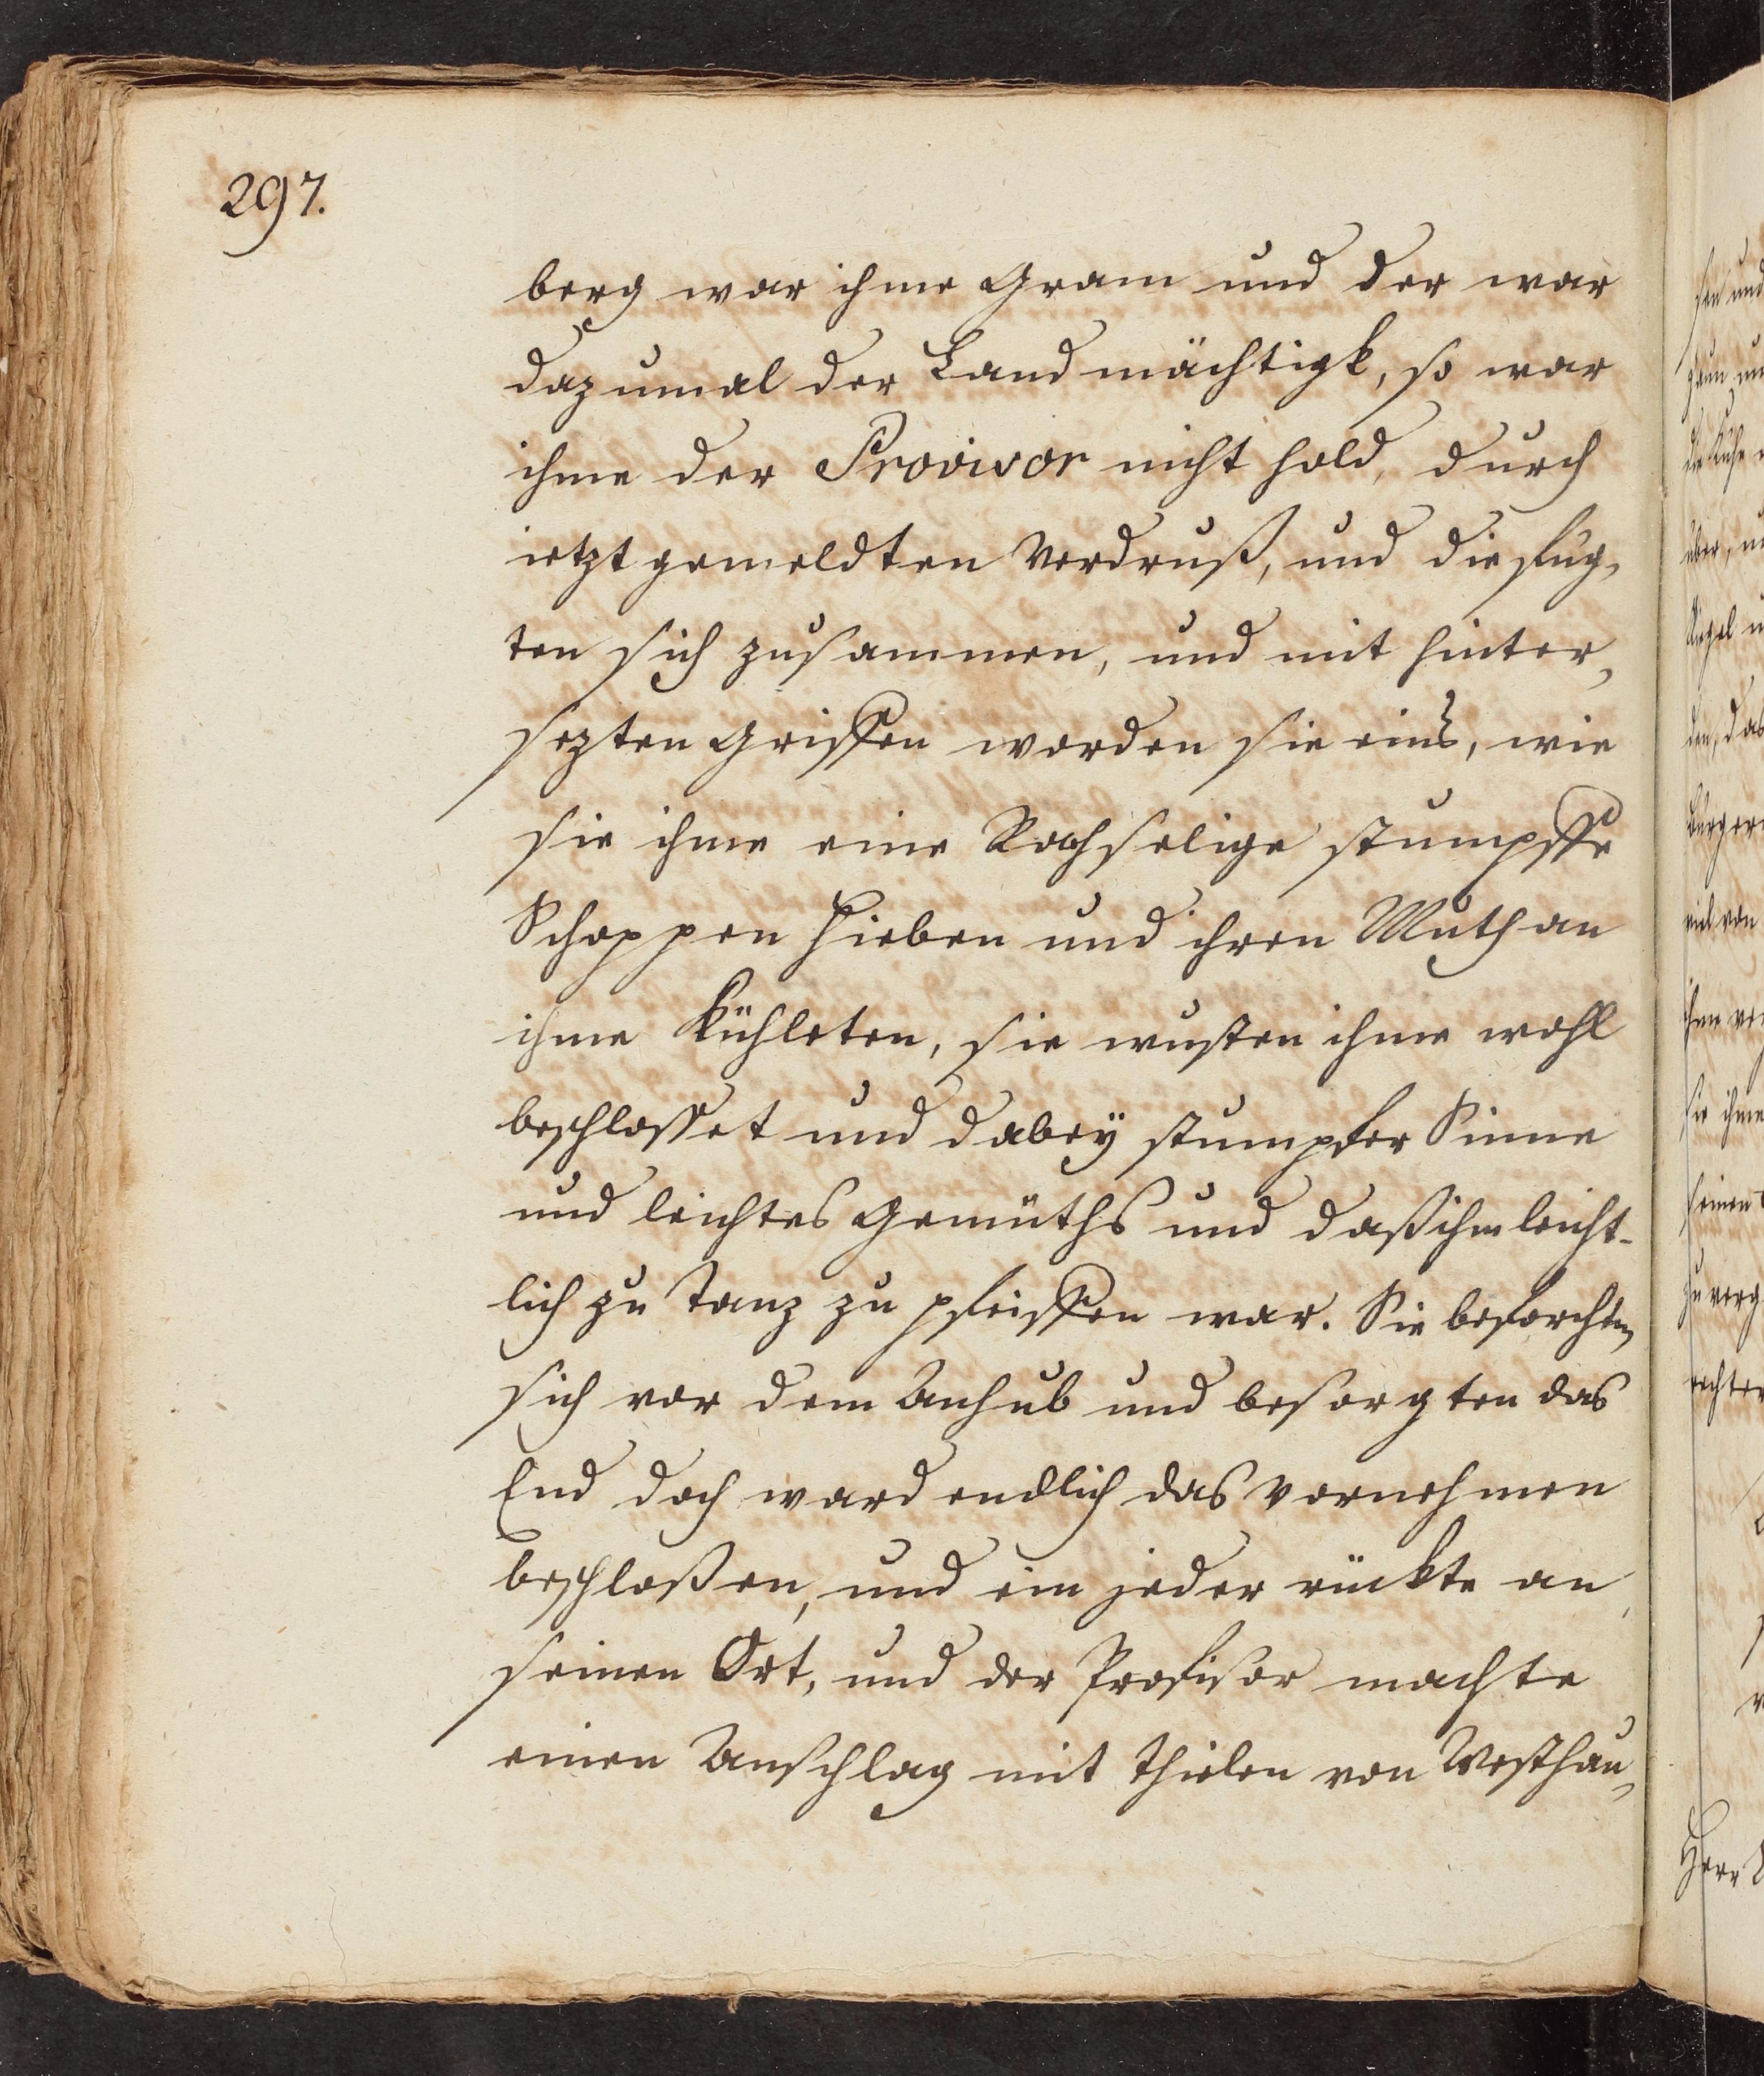 297.
berg war ihme Gram und der war
dazumal der Landmächtigk, so war
ihme der Provisor nicht hold, durch
ietzt gemeldten Verdruß, und die füg,
ten sich zusammen, und mit hinter,
sezten Griffen worden sie eins, wie
sie ihme eine Rachselige stumpffe
Schappen hieben und ihren Muth an
ihme kühleten, sie wusten ihme wohl
beschlosset und dabeÿ stumpfer Sinne
und leichtes Gemüths und daß ihm leicht-
lich zu Tanz zu pfeiffen war. Sie beforchten
sich vor dem Anhub und besorgten das
End doch ward endlich das Vornehmen
beschloßen, und ein jeder rückte an
seinen Ort, und der Profisor machte
einen Anschlag mit Thielen von Westhau,